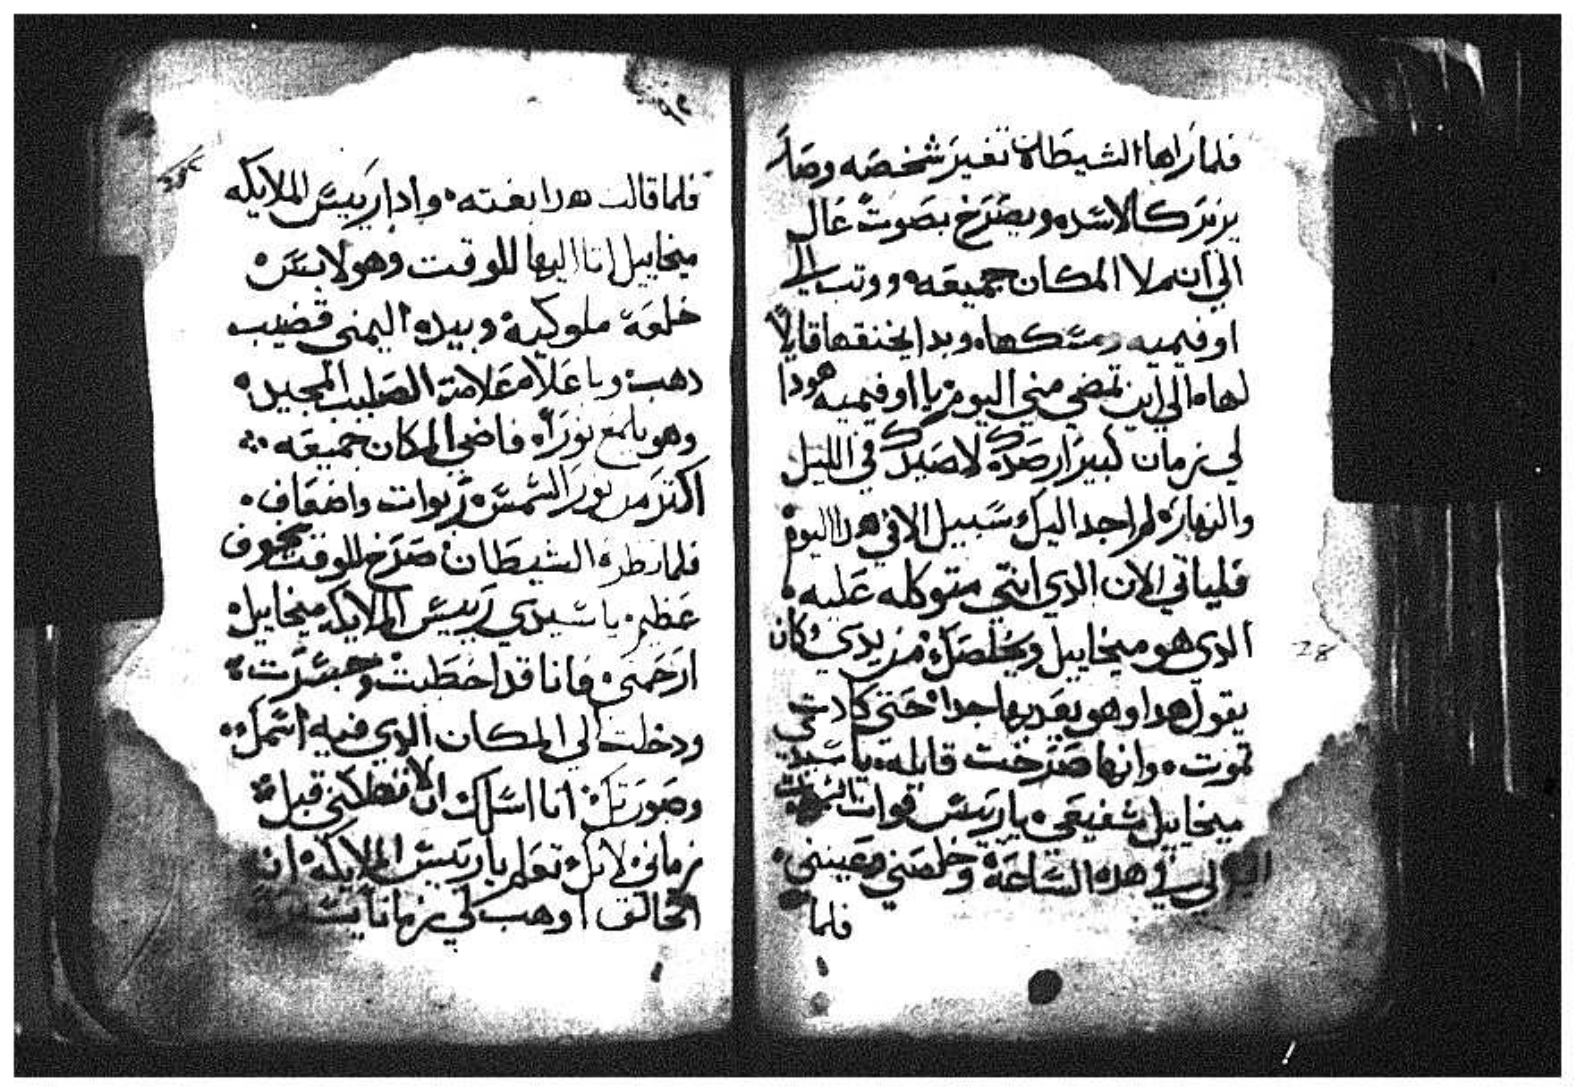 فلما راها الشيطان تغير شخصه وصار
يزير كالاسد ويصرخ بصوت عال
الي ان ملا المكان جميعه ووتب الي
اوفيميه ومسكها وبدا يخنقها قايلاً
لها الي اين تمضي مني اليوم يا اوفيميه هودا
لي زمان كبير ارصدك لاصيدك في الليل
والنهار لم اجد اليك سبيل الا في هدا اليوم
فلياتي الان الدي انتي متوكله عليه
الدي هو ميخاييل ويخلصك من يدي وكان
يقول هدا وهو يعديها جدا حتي كادت
تموت وانها صرخت قايله يا سيدي
ميخاييل شفيعي يا رييس قوات
لي في هده الساعة وخلصني وعينني
فلما
28
فلما قالت هدا بغته وادا رييس الملايكه
ميخاييل اتا اليها للوقت وهو لابس
خلعة ملوكية وبيده اليمني قضيب
دهب وباعلاه علامة الصليب المجيد
وهو يلمع نوراً فاضي المكان جميعه
اكتر من نور الشمس ربوات واضعاف
فلما نظره الشيطان صرخ للوقت بخوف
عظيم يا سيدي رييس الملايكه ميخاييل
ارحمني فانا قد اخطيت وجسرت
ودخلت الي المكان الدي فيه اسمك
وصورتك انا اسالك ان لا تهلكني قبل
زماني لانك تعلم يا رييس الملايكه ان
الخالق اوهب لي زمانا يسير